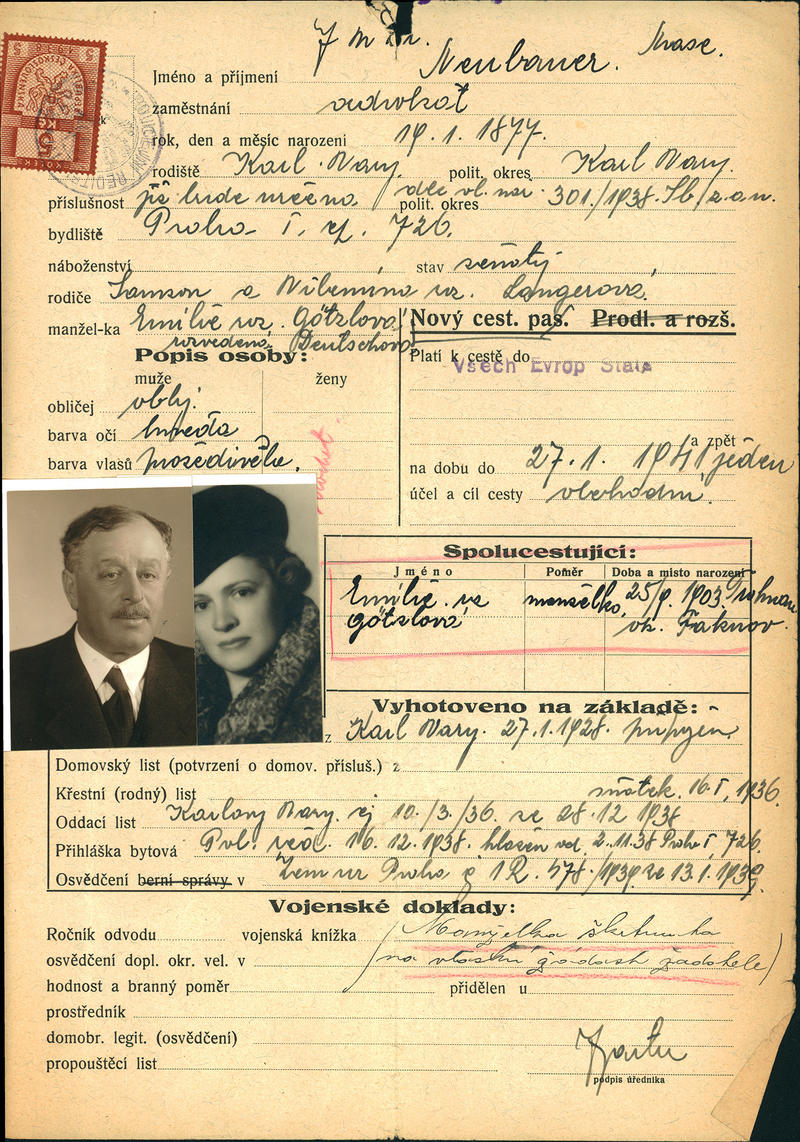 Neubauer.
Jméno a příjmení
zaměstnání advokát
rok, den a měsíc narození 19. 1. 1877.
rodiště Karl. Vary. polit. okres Karl Vary.
příslušnost již bude určena polit. okres dle vl. nař. 301./1938. Sb/z. a n.
bydliště Praha I, čp. 726.
náboženství stav ženatý
rodiče Samson a Vilemína roz. Langerová.
manžel-ka Emilie roz. Götzlová
rozvedená Deutschová
Nový cest. pas. Prodl. a rozš.
Popis osoby:
Platí k cestě do
Všech Evrop Států
muže ženy
obličej oblý.
barva očí hnědá
barva vlasů prošedivělé.
a zpět
na dobu do 27. 1. 1941 jeden
účel a cíl cesty obchodní.
Spolucestující:
Jméno Poměr Doba a místo narození
Emilie roz manželka, 25/9. 1903
Götzlová ok. Falknov.
Vyhotoveno na základě:
z Karl Vary. 27. 1. 1928.
Domovský list (potvrzení o domov. přísluš.) z
Křestní (rodný) list sňatek. 16. I, 1936.
Oddací list Karlovy Vary. čj 10./3./36. ze 28. 12 1938
Přihláška bytová Pol. řed. 16. 12. 1938. hlášen od 2. 11. 38 Praha I, 726.
Osvědčení berní správy v Zem úř Praha č 1 R. 578./1939 ze 13. 1. 1939.
Vojenské doklady:
Ročník odvodu vojenská knížka (Manželka škrtnuta
osvědčení dopl. okr. vel. v na vlastní žádost žadatele)
hodnost a branný poměr přidělen u
prostředník
domobr. legit. (osvědčení)
propouštěcí list
podpis úředníka